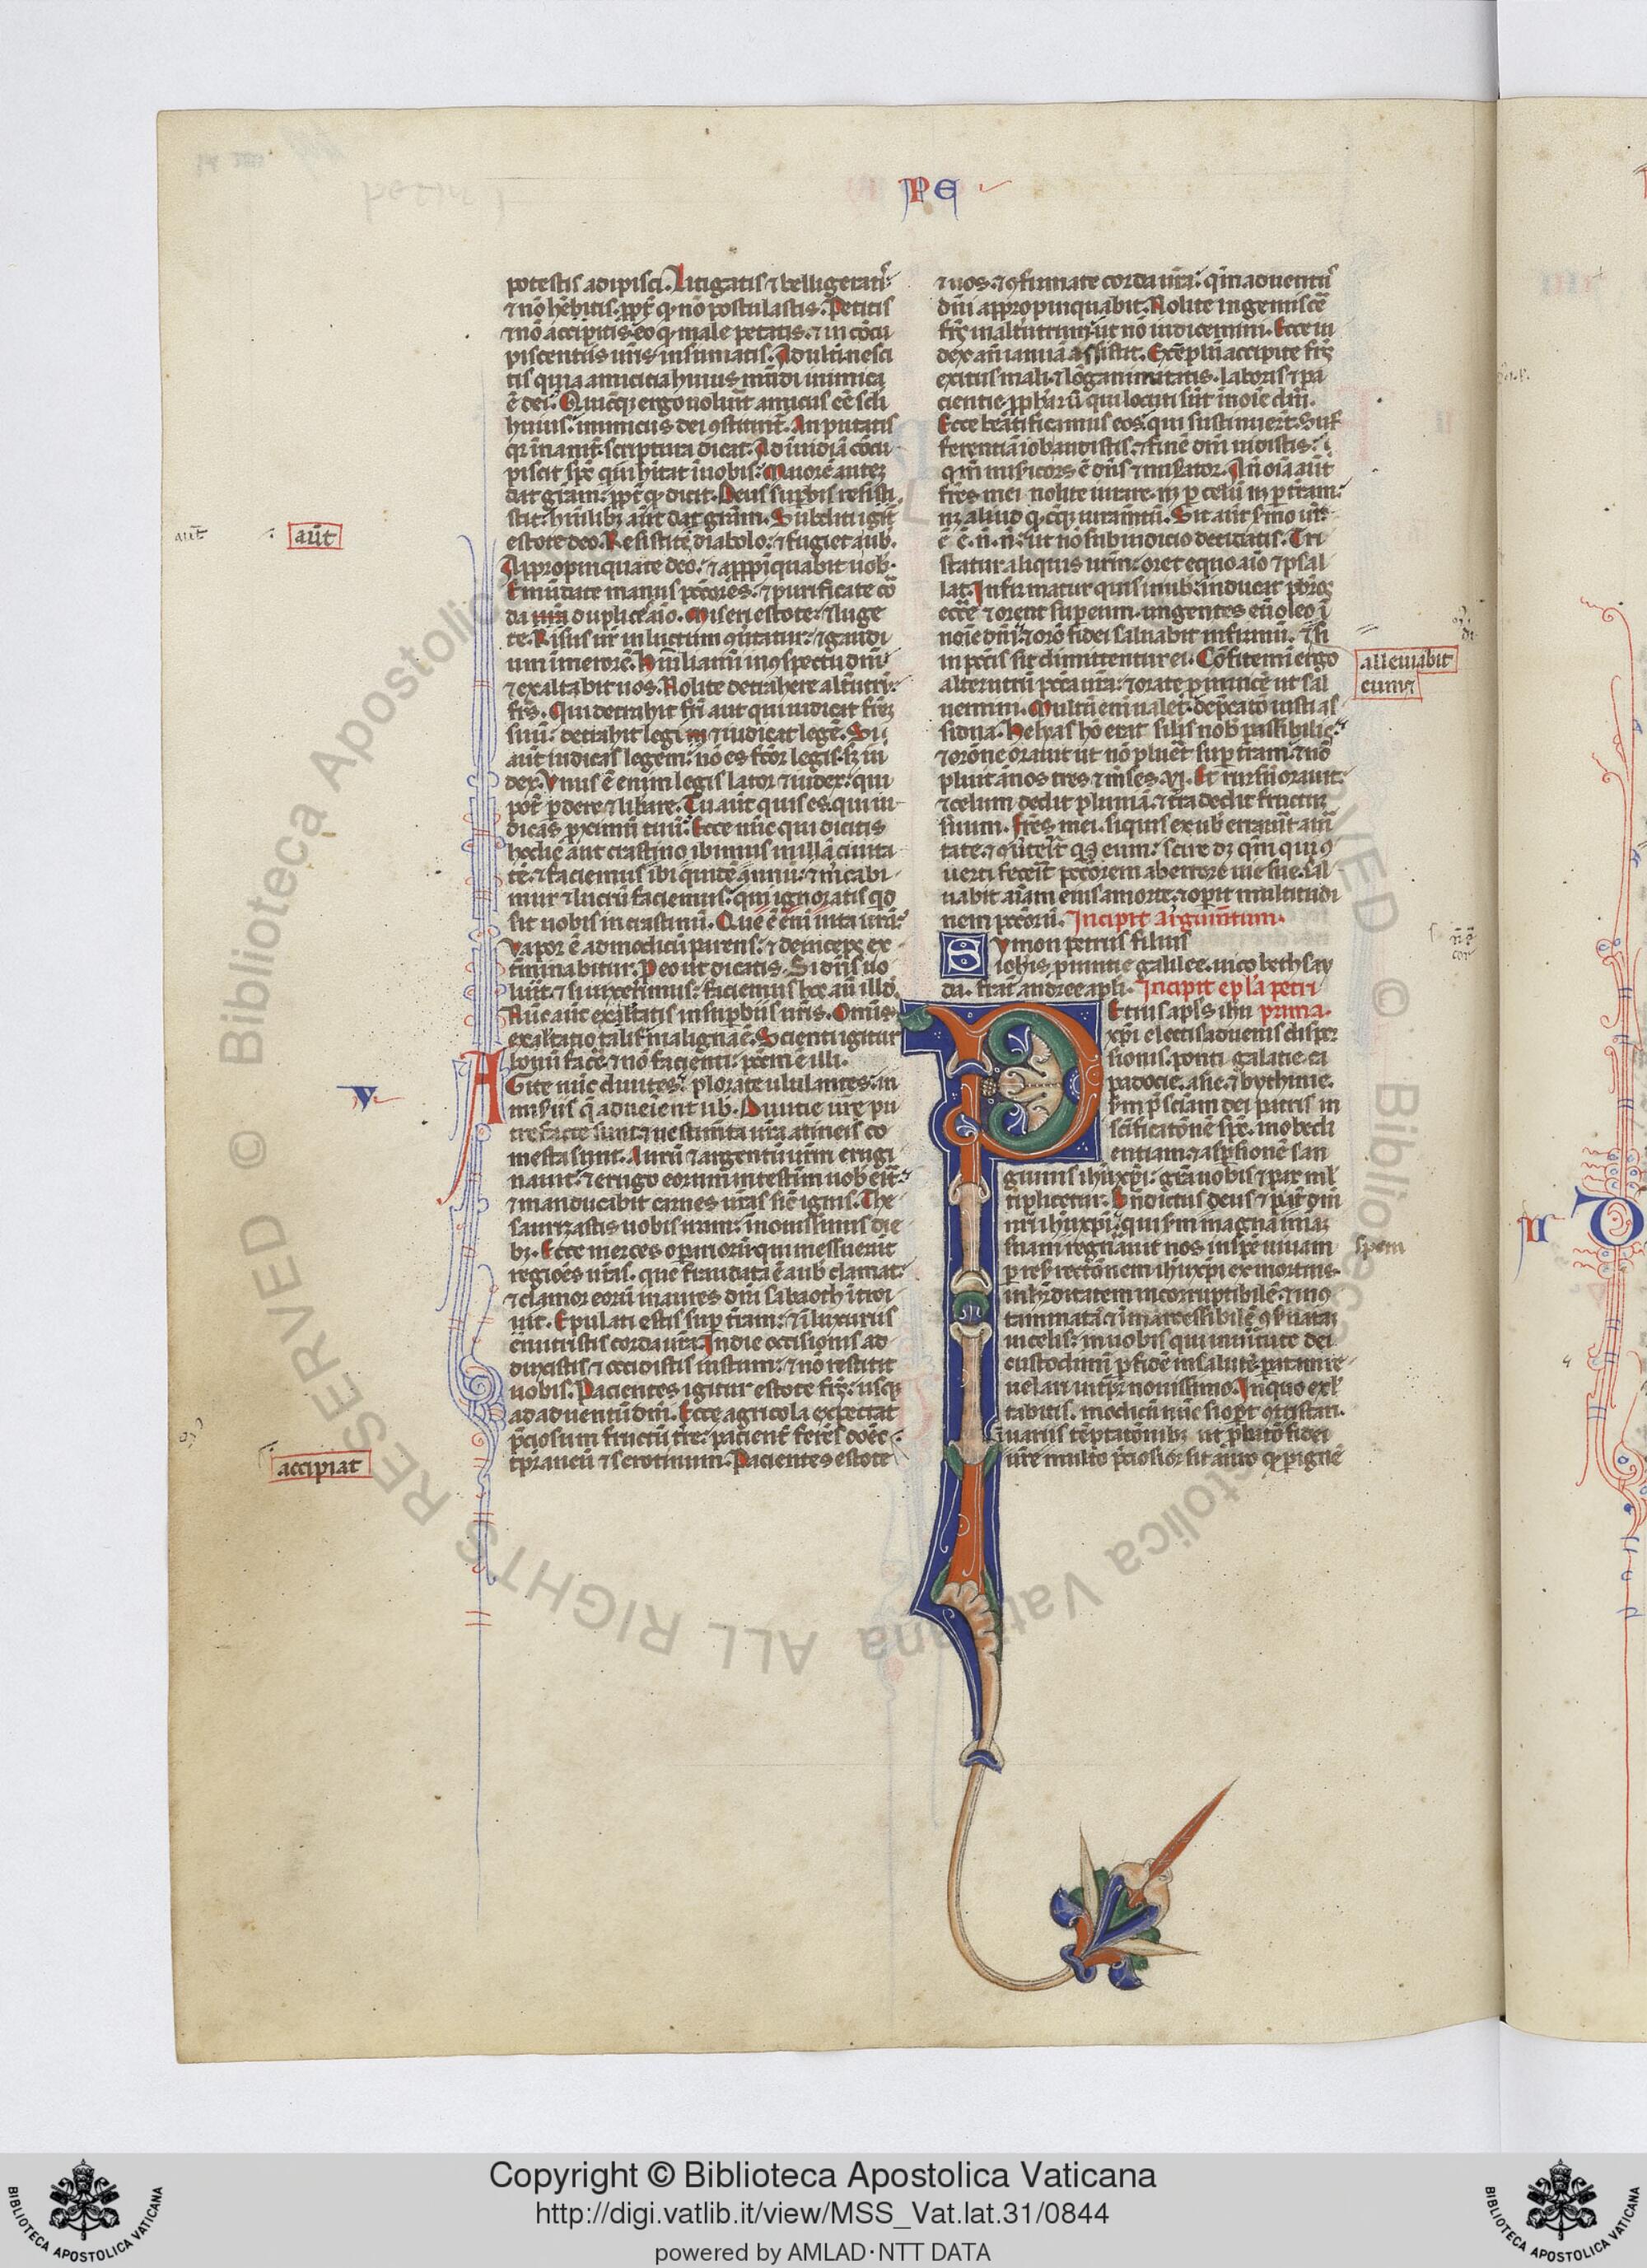 PE
potestis adipisci. Litigatis ⁊ belligeratis
⁊ nō hēbitis. ppt̄ q̄ nō postulastis. Petitis
⁊ nō accipitis. eo q̄ male petatis. ⁊ in cōcu
piscentiis ur̄is insumatis. Adulti nesci
tis quia amicitia huius mūdi inimica
ē dei. Quicūq; ergo uolūit amicus eē sc̄li
huius: inimicus dei ꝯstituit̄. An putatis
qr̄ inanit̄ scriptura dicat. Ad inuidiā cōcu
piscit sp̄c qui hītat ī uobis: Maiorē autez
dat gr̄am: ppt̄ q̄ dicit. Deus supbis resisti
stit: hūilibꝫ aūt dat gr̄am. Subditi igit̄
estote deo. Resistite diabolo: ⁊ fugiet a uob.
Appropinquate deo. ⁊ appropīquabit uob.
Emūdate manus peccōres. ⁊ purificate co
da duplice aīo. Miseri estote: ⁊ luge
te. Risus ur̄ in luctum ꝯūtatur: ⁊ gaudi
um ī merorē. Humiliamī in ꝯspectu dm̄
⁊ exaltabit uos. Nolite detrahere alt̄utri
fr̄s. Qui detrahit fr̄i aut qui iudicat fr̄ez
suū: detrahit legi ⁊ iudicat legē. Si
aūt iudicas legem: nō es fc̄or legis. sꝫ iu
dex. Unus ē enim legis lator ⁊ iudex: qui
pot̄ pdere ⁊ libare. Tu aūt quis es. qui iu
dicas pximū tuū. Ecce nūc qui dicitis
hodie aut crastino ibimus ī illā ciuita
tē. ⁊ faciemus ibi quidē annū. ⁊ m̄cabi
mur ⁊ lucrū faciemus: qui ignoratis qd
sit uobis in crastinū. Que ē eni uita ur̄a:
Vapor ē ad modicū parens: ⁊ deinceps ex
t̄minabitur. Peo ut dicatis. Si dn̄s uo
lūit. ⁊ si uixerimus: faciemus hoc aū illd.
Nūc aūt exultatis in supbiis ur̄is. Omis
exaltatio talis maligna ē. Scienti igitur
bonū facē. ⁊ nō facienti: pctm̄ ē illi.
AGite nūc diuites: plorate ululantes. in
miseriis q̄ adueient uob. Diuitie ur̄e pu
trefacte sunt: ⁊ uestimēta ur̄a a tineis co
mesta sunt. Aurū ⁊ argentū ur̄m erugi
nauit: ⁊ erugo eorum in testim̄ uob erit:
⁊ manducabit carnes ur̄as sic ignis. The
saurizastis uobis iram: in nouissimis die
bꝫ. Ecce merces opariorū qui messuerūt
regiōes ur̄as. que fraudata ē a ub clamat:
⁊ clamor eorū in aures dni sabaoth introi
uit. Epulati estis sup tr̄am: ⁊ ī luxuriis
enutristis corda ur̄a. In die occisionis ad
duxistis ⁊ occidistis iustum: ⁊ nō restitit
uobis. Pacientes igitur estote fr̄s: usq;
ad aduentū dni. Ecce agricola expectat
p̄ciosum fructū tr̄e: pacient̄ ferēs doēc
tp̄raneū ⁊ serotinum. Pacientes estote
aūt
aūt
v
accipiat
⁊ uos. ⁊ ꝯfirmate corda ur̄a: qm̄ aduentus
dni appropinquabit. Nolite ingemiscē
fr̄s in alt̄utrum: ut nō iudicemini. Ecce iu
dex an̄ ianuā assistit. Exēplū accipite fr̄s
exitus mali. ⁊ lōganimitatis. laboris ⁊ pa
cientie. pphārū qui locuti sūt in noīe dni.
Ecce beātificamus eos. qui sustinuert̄. Suf
ferentiā iob audistis. ⁊ finē dni uidistis:
qm̄ misericors ē dns ⁊ miserator. An̄ oīa aūt
frēs mei nolite iurare. nꝫ p celū nꝫ p tr̄am:
nꝫ aliud q̄cūq; iuramtū. Sit aūt smo ur̄:
ē ē. n̄. n̄. ut nō sub iudicio decidatis. Tri
statur aliquis ur̄m: oret equo aīo ⁊ psal
lat. Infirmatur quis in ub: inducat pbr̄os
ecc̄e ⁊ orent sup eum. ungentes eū oleo ī
noīe dni. ⁊ orō fidei saluabit infirmū. ⁊ si
in pctis sit dimittentur ei. Cōfitemī ergo
alterutrū pctā ur̄a: ⁊ orate pinuicē ut sal
uemini. Multū enī ualet. depcatō iusti as
sidua. Helyas hō erat similis nob̄ passibilis:
⁊ orōne orauit ut nō pluet̄ sup tr̄am. ⁊ nō
pluit ānos tres ⁊ m̄ses. vi. Et rursū orauit:
⁊ celum dedit pluuiā. ⁊ tr̄a dedit fructū
suum. Frēs mei. si quis ex ub errauīt a ūi
tate. ⁊ ꝯūterit qs eum: scire dꝫ qm̄ qui ꝯ
uerti fecerit pctōrem ab errore uie sue. sal
uabit aīam eius a morte. ⁊ opit multitudi
nem pctōrū. Incipit argum̄tum.
Symon petrus filius
iohis. puincie galilee. uico bethsay
da. frat̄ andree apli. Incipit epl'a petri
Etrus apl's ihu prima.
xp̄i electis aduenis disper
sionis. ponti galatie. ca
padocie. asie. ⁊ bythinie.
sm̄ p̄ sciam dei patris in
scīficatōne sp̄c. in obedi
entiam. ⁊ asp̄sionē san
guinis ihuxp̄i: gr̄a uobis ⁊ pax ml
tiplicetur. Bn̄dictus deus ⁊ pat̄ dni
nr̄i ihuxp̄i. qui sm̄ magnā miāz
suam regn̄auit nos in spē uiuam
p resrectōnem ihuxp̄i ex mortuis
in hr̄ditatem incorruptibilē. ⁊ inꝯ
taminatā. ⁊ īmarcessibilē ꝯseruatā
in celis: in uobis qui in uirtute dei
custodimī p fidē in salutē. paratam re
uelari in tp̄r nouissimo. In quo exl
tabitis. modicū nūc si opt̄ ꝯtristari.
ī uariis tēptatōnibꝫ ut pbatō fidei
ur̄e multo p̄ciosior sit auro q̄ p ignē
alleuiabit
eum
spem
Copyright © Biblioteca Apostolica Vaticana
http://digi.vatlib.it/view/MSS_Vat.lat.31/0844
powered by AMLAD·NTT DATA
BIBLIOTECA APOSTOLICA VATICANA
BIBLIOTECA APOSTOLICA VATICANA
© Biblioteca Apostolica Vaticana ALL RIGHTS RESERVED